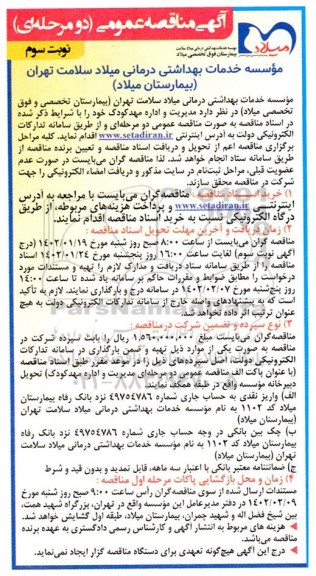 آگهی مناقصه عمومی (دو مرحله‌ای)
نوبت سوم
میلاد
موسسه خدمات بهداشتی درمانی میلاد سلامت
بیمارستان فوق تخصصی میلاد
مؤسسه خدمات بهداشتی درمانی میلاد سلامت تهران
(بیمارستان میلاد)
مؤسسه خدمات بهداشتی درمانی میلاد سلامت تهران (بیمارستان تخصصی و فوق
تخصصی میلاد) در نظر دارد مدیریت و اداره مهدکودک خود را با شرایط ذکر شده
در اسناد مناقصه به صورت مناقصه عمومی دو مرحله‌ای و از طریق سامانه تدارکات
الکترونیکی دولت به آدرس اینترنتی www.setadiran.ir اقدام نماید. کلیه مراحل
برگزاری مناقصه اعم از تحویل و دریافت اسناد مناقصه و تعیین برنده مناقصه از
طریق سامانه ستاد انجام خواهد شد. لذا مناقصه گران می‌بایست در صورت عدم
عضویت قبلی، مراحل ثبت‌نام در سایت مذکور و دریافت گواهی و امضاء الکترونیکی جهت
شرکت در مناقصه محقق سازند.
۱) خرید اسناد مناقصه: مناقصه‌گران می‌بایست با مراجعه به آدرس
اینترنتی www.setadiran.ir و پرداخت هزینه‌های مربوطه، از طریق
درگاه الکترونیکی نسبت به خرید اسناد مناقصه اقدام نمایند.
۲) زمان دریافت و آخرین مهلت تحویل اسناد مناقصه:
مناقصه گران می‌بایست از ساعت ۸:۰۰ صبح روز شنبه مورخ ۱۴۰۲/۰۱/۱۹ (درج
آگهی نوبت سوم) لغایت ساعت ۱۶:۰۰ روز پنجشنبه مورخ ۱۴۰۲/۰۱/۲۴ اسناد
مناقصه را از طریق سامانه ستاد دریافت و مدارک لازم را تهیه و مستندات مورد
درخواست را مطابق ضوابط و مقررات حاکم بر سامانه یاد شده تا ساعت ۱۴:۰۰
روز پنجشنبه مورخ ۱۴۰۲/۰۲/۰۷ در سامانه درج و بارگذاری نمایند. لازم به تأکید
است که به پیشنهادهای واصله خارج از سامانه تدارکات الکترونیکی دولت به هیچ
عنوان ترتیب اثر داده نخواهد شد.
۳) نوع سپرده و تضمین شرکت در مناقصه:
مناقصه‌گران می‌بایست مبلغ ۱,۵۶۰,۰۰۰,۰۰۰ ریال را بابت سپرده شرکت در
مناقصه به صورت یکی از موارد ذیل تهیه و ضمن بارگذاری در سامانه تدارکات
الکترونیکی دولت، اصل سپرده‌های ذیل را در موعد مقرر طبق اسناد مناقصه
(با عنوان پاکت الف مناقصه عمومی دو مرحله‌ای مدیریت و اداره مهدکودک) تحویل
دبیرخانه مؤسسه واقع در طبقه همکف نمایند.
الف) واریز نقدی به حساب جاری شماره ۴۹۷۵۴۷۸۶ نزد بانک رفاه بیمارستان
میلاد کد ۱۱۰۲ به نام مؤسسه خدمات بهداشتی درمانی میلاد سلامت تهران
(بیمارستان میلاد)
ب) چک بین بانکی در وجه حساب جاری شماره ۴۹۷۵۴۷۸۶ نزد بانک رفاه
بیمارستان میلاد کد ۱۱۰۲ به نام مؤسسه خدمات بهداشتی درمانی میلاد سلامت
تهران (بیمارستان میلاد)
ج) ضمانتنامه معتبر بانکی با اعتبار سه ماهه، قابل تمدید و بدون قید و شرط
۴) زمان و محل بازگشایی پاکات مرحله اول مناقصه:
مستندات ارسال شده از سوی مناقصه‌گران رأس ساعت ۹:۰۰ صبح روز شنبه مورخ
۱۴۰۲/۰۲/۰۹ در دفتر مدیرعامل این مؤسسه واقع در تهران، بزرگراه شهید همت،
بین شیخ فضل اله و شهید چمران، بیمارستان میلاد، طبقه اول گشایش خواهد شد.
هزینه های مربوط به انتشار آگهی و کارشناس رسمی دادگستری به عهده برنده
مناقصه می‌باشد.
درج این آگهی هیچ‌گونه تعهدی برای دستگاه مناقصه گزار ایجاد نمی‌نماید.